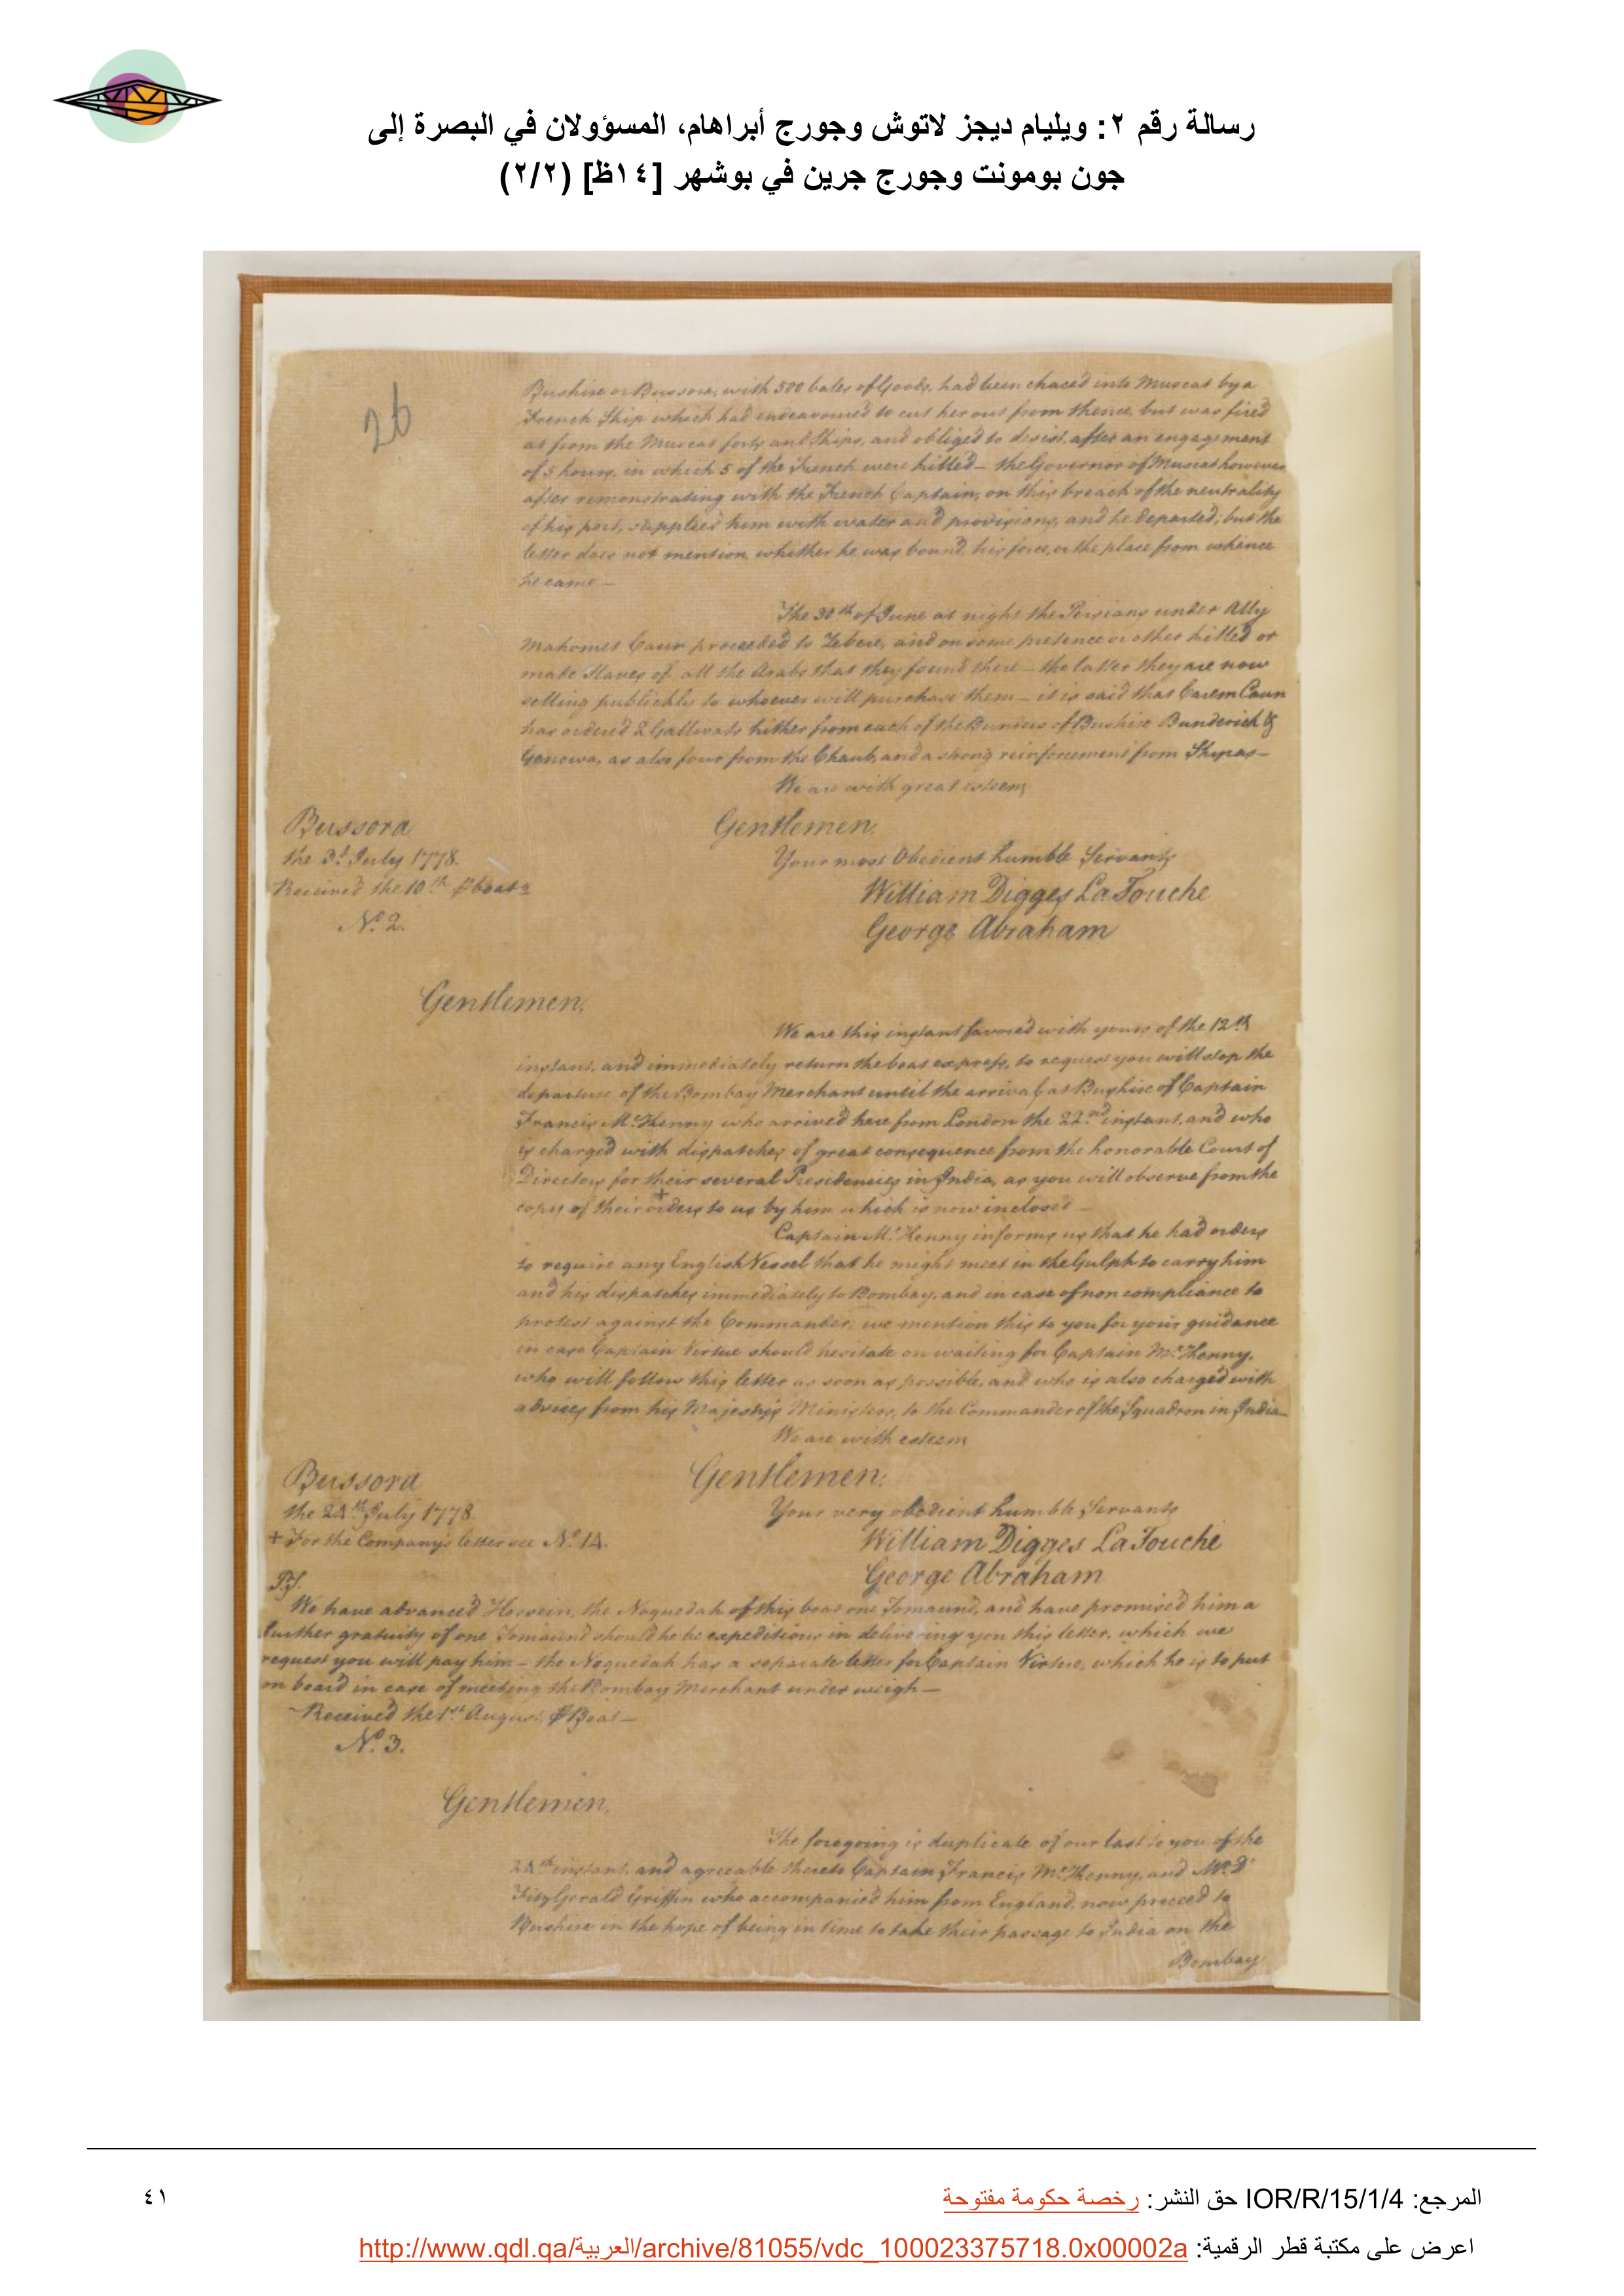 رسالة رقم ٢: ويليام ديجز لاتوش وجورج أبراهام، المسؤولان في البصرة إلى
جون بومونت وجورج جرين في بوشهر [١٤ظ] (٢/٢)
26
Bushire or Bussora, with 500 bales of Goods, had been chaced into Muscat by a
French Ship which had endeavoured to cut her out from thence, but was fired
at from the Muscat forts and Ships, and obliged to desist, after an engagement
of 5 hours, in which 5 of the French were killed – the Governor of Muscat however
after remonstrating with the French Captain, on this breach of the neutrality
of his port, supplied him with water and provisions, and he departed; but the
letter does not mention whither he was bound, his force, or the place from whence
he came –
The 30th of June at night the Persians under Ally
Mahomet Caun proceeded to Zebere, and on some pretence or other killed or
made Slaves of all the Arabs that they found there – the latter they are now
selling publickly to whoever will purchase them – it is said that Carem Caun
has ordered 2 Gallivats hither from each of the Bunders of Bushire Bunderick &
Genowa, as also four from the Chaub, and a strong reinforcement from Shyras –
We are with great esteem
Gentlemen.
Bussora
the 3d July 1778.
Received the 10th ⅌ boat
No. 2.
Your most Obedient humble Servants
William Digges LaTouche
George Abraham
Gentlemen,
We are this instant favored with yours of the 12th
instant, and immediately return the boat express, to request you will stop the
departure of the Bombay Merchant until the arrival at Bushire of Captain
Francis McHenny who arrived here from London the 22nd instant, and who
is charged with dispatches of great consequence from the honorable Court of
Directors for their several Presidencies in India, as you will observe from the
copy of their + orders to us by him which is now inclosed –
Captain McHenny informs us that he had orders
to require any English Vessel that he might meet in the Gulph to carry him
and his dispatches immediately to Bombay, and in case of non compliance to
protest against the Commander, we mention this to you for your guidance
in case Captain Virtue should hesitate on waiting for Captain McHenny,
who will follow this letter as soon as possible, and who is also charged with
advices from his Majesty's Ministers, to the Commander of the Squadron in India
We are with esteem
Gentlemen.
Bussora
the 24th July 1778.
+ For the Company's letter see No. 14.
Your very obedient humble Servants
William Digges LaTouche
George Abraham
P.S.
We have advanced Hossein, the Noquedah of this boat one Tomaund, and have promised him a
further gratuity of one Tomaund should he be expeditious in delivering you this letter, which we
request you will pay him – the Noquedah has a separate letter for Captain Virtue, which he is to put
on board in case of meeting the Bombay Merchant under weigh –
Received the 1st August ⅌ Boat –
No. 3.
Gentlemen,
The foregoing is duplicate of our last to you of the
24th instant, and agreeable thereto Captain Francis McHenny, and Mr. D
FitzGerald Griffin who accompanied him from England, now proceed to
Bushire in the hope of being in time to take their passage to India on the
Bombay
المرجع: IOR/R/15/1/4 حق النشر: رخصة حكومة مفتوحة
٤١
اعرض على مكتبة قطر الرقمية: http://www.qdl.qa/العربية/archive/81055/vdc_100023375718.0x00002a